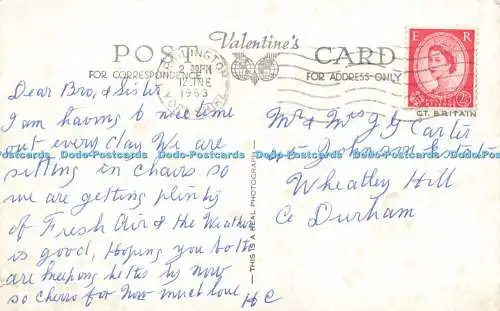 POST Valentine's CARD
FOR CORRESPONDENCE FOR ADDRESS ONLY
2 30PM
12 JNE
1963
E R
2½D
GT. BRITAIN
Dear Bro, & Sister,
I am having a nice time
out every day We are
sitting in chairs so
we are getting plenty
of Fresh Air & the Weather
is good, Hoping you both
are keeping better by now
so cheerio for Now much love
H C
THIS IS A REAL PHOTOGRAPH
Mr & Mrs J G Carter
Johnson Estate
Wheatley Hill
Co Durham
Dodo-Postcards Dodo-Postcards Dodo-Postcards Dodo-Postcards Dodo-Postcards Dodo-Postcards